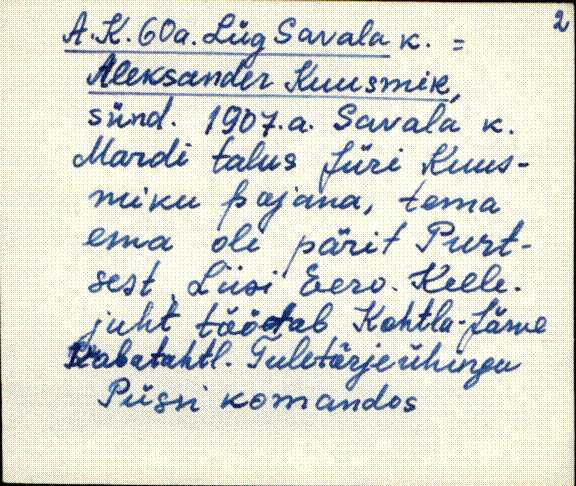 2
A.K. 60a. Lüg Savala k. =
Aleksander Kuusmik,
sünd. 1907.a. Savala k.
Mardi talus Jüri Kuus-
miku pojana, tema
ema oli pärit Purt-
sest, Liisi Eero. Keele-
juht töötab Kohtla-Järve
Vabatahtl. Tuletõrjeühingu
Püssi komandos